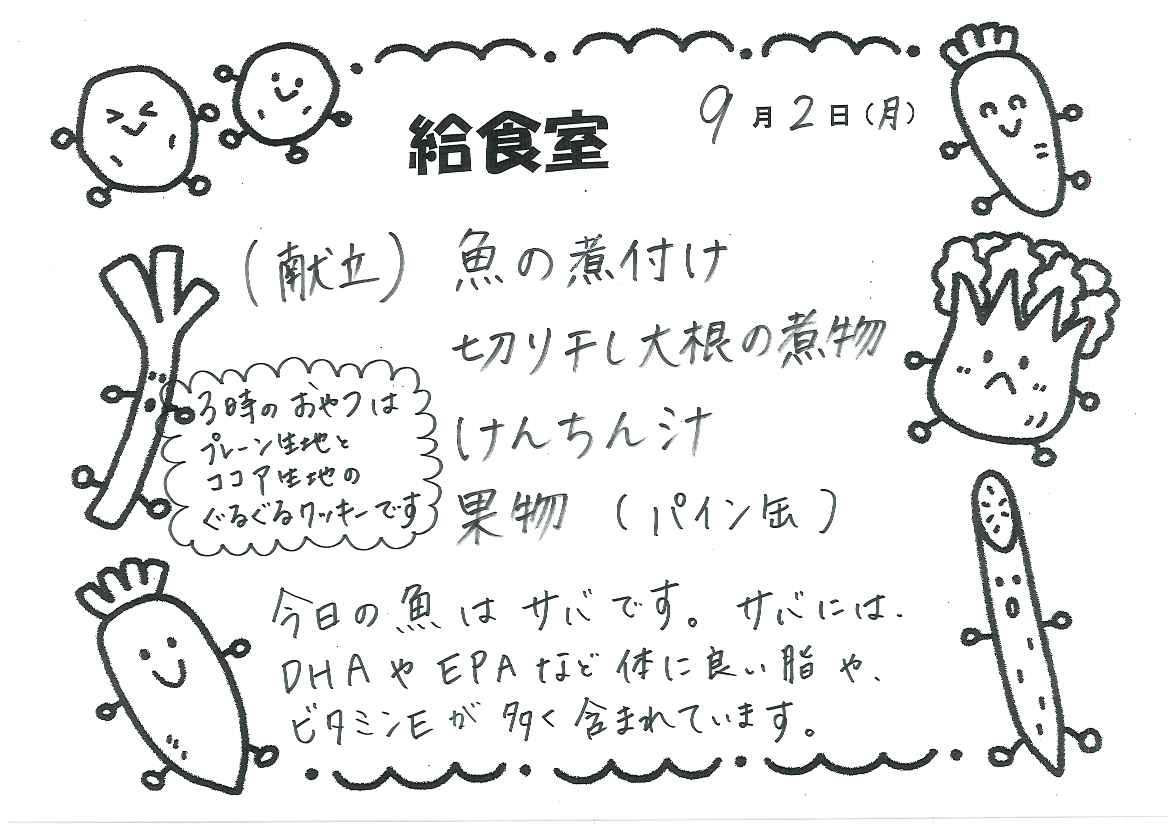 給食室
9月2日(月)
(献立) 魚の煮付け
切り干し大根の煮物
けんちん汁
果物 (パイン缶)
3時のおやつは
プレーン生地と
ココア生地の
ぐるぐるクッキーです
今日の魚はサバです。サバには、
DHAやEPAなど体に良い脂や、
ビタミンEが多く含まれています。